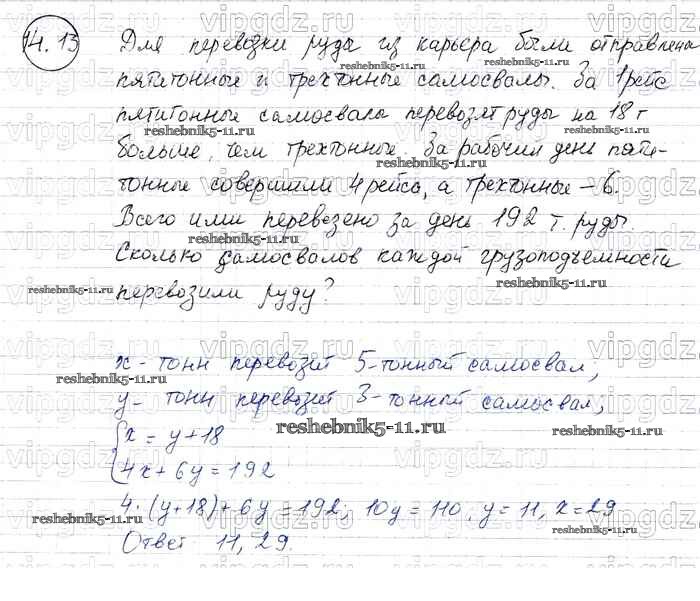 14.13
Для перевозки руды из карьера были отправлены
пятитонные и трехтонные самосвалы. За 1 рейс
пятитонные самосвалы перевозят руды на 18 т
больше, чем трехтонные. За рабочий день пяти-
тонные совершили 4 рейса, а трехтонные – 6.
Всего ими перевезено за день 192 т. руды.
Сколько самосвалов каждой грузоподъемности
перевозили руду?
x - тонн перевозит 5-тонный самосвал;
y - тонн перевозит 3-тонный самосвал;
{x = y + 18
4x + 6y = 192
4·(y+18) + 6y = 192; 10y = 110, y = 11, x = 29
Ответ 11, 29.
vipgdz
reshebnik5-11.ru